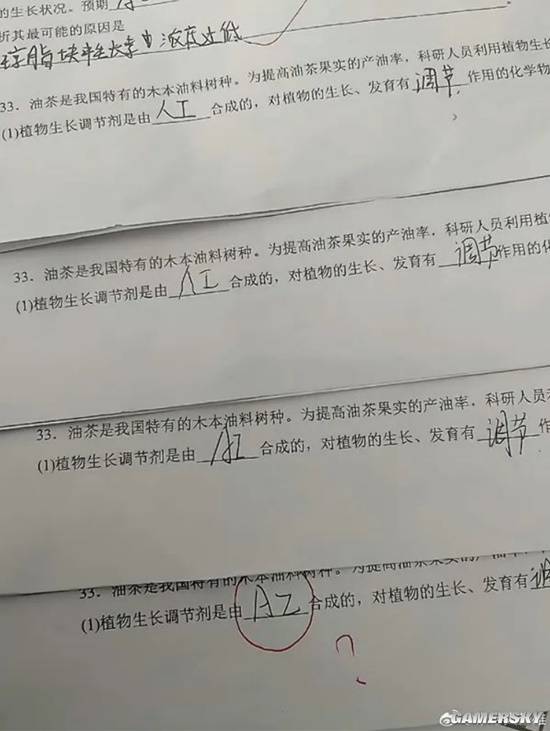 的生长状况。预期
析其最可能的原因是
33. 油茶是我国特有的木本油料树种。为提高油茶果实的产油率，科研人员利用植物生长
(1)植物生长调节剂是由 人工 合成的，对植物的生长、发育有 调节 作用的化学物
33. 油茶是我国特有的木本油料树种。为提高油茶果实的产油率，科研人员利用植
(1)植物生长调节剂是由 人工 合成的，对植物的生长、发育有 调节 作用的化
33. 油茶是我国特有的木本油料树种。为提高油茶果实的产油率，科研人员利
(1)植物生长调节剂是由 AI 合成的，对植物的生长、发育有 调节 作
33. 油茶是我国特有的木本油料树种。为提高油茶果实的产油率，
(1)植物生长调节剂是由 AZ 合成的，对植物的生长、发育有 调
?
GAMERSKY